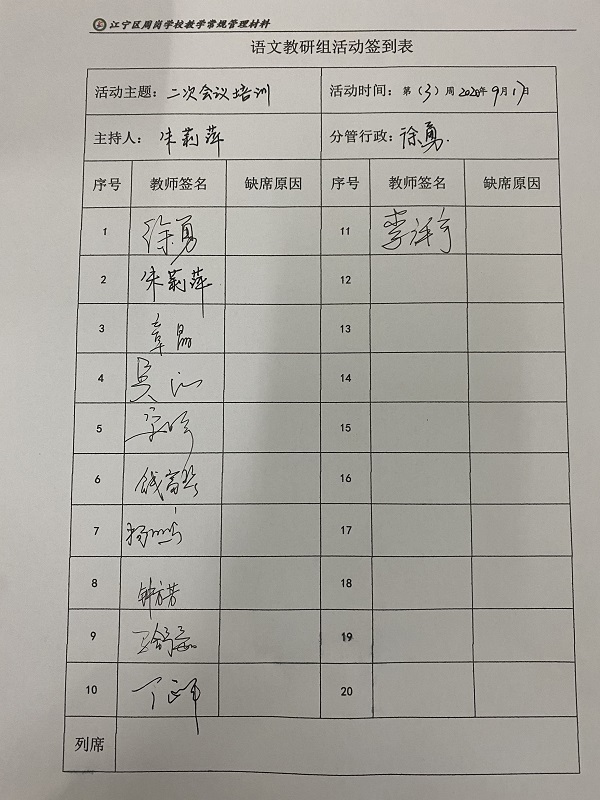 江宁区周岗学校教学常规管理材料
语文教研组活动签到表
活动主题：二次会议培训 活动时间：第（3）周 2020年9月17日
主持人：朱莉萍 分管行政：徐勇.
序号 教师签名 缺席原因 序号 教师签名 缺席原因
1 徐勇 11
2 朱莉萍 12
3 章晶 13
4 吴 14
5 15
6 钱富 16
7 杨 17
8 钟方芳 18
9 王 19
10 丁 20
列席